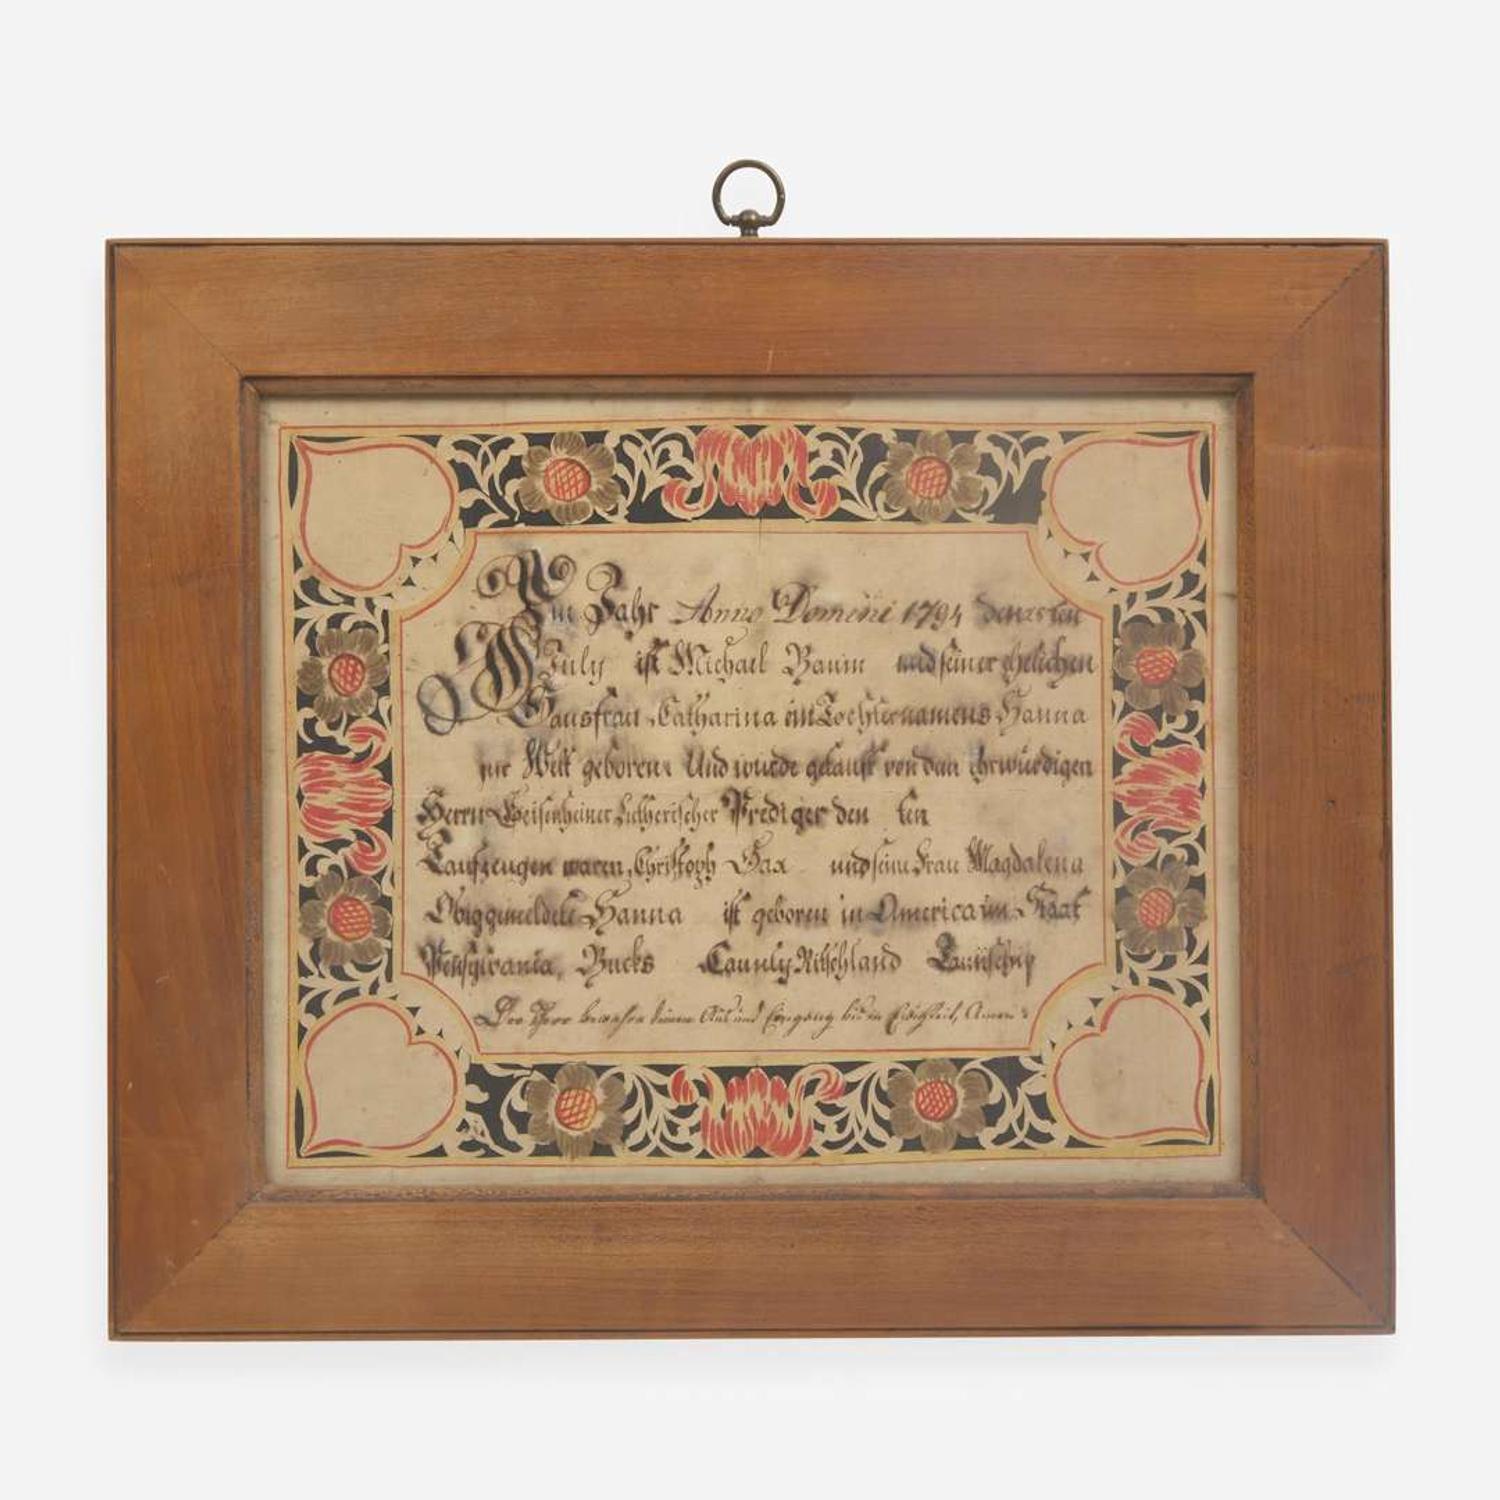 Im Jahr Anno Domini 1794 den 28ten
July ist Michael Baum und seiner ehelichen
Hausfrau Catharina ein Tochter namens Hanna
zur Welt geboren. Und wurde getauft von dem Ehrwürdigen
Herrn Geisenheiner Lutherischer Prediger den ten
Taufzeugen waren, Christoph Sax und seine Frau Magdalena
Obiggemeldete Hanna ist geboren in America im Staat
Pensylvania, Bucks Caunly Ritschland Taunschip
Der Herr bewahre deinen Aus und Eingang bis in Ewigkeit, Amen